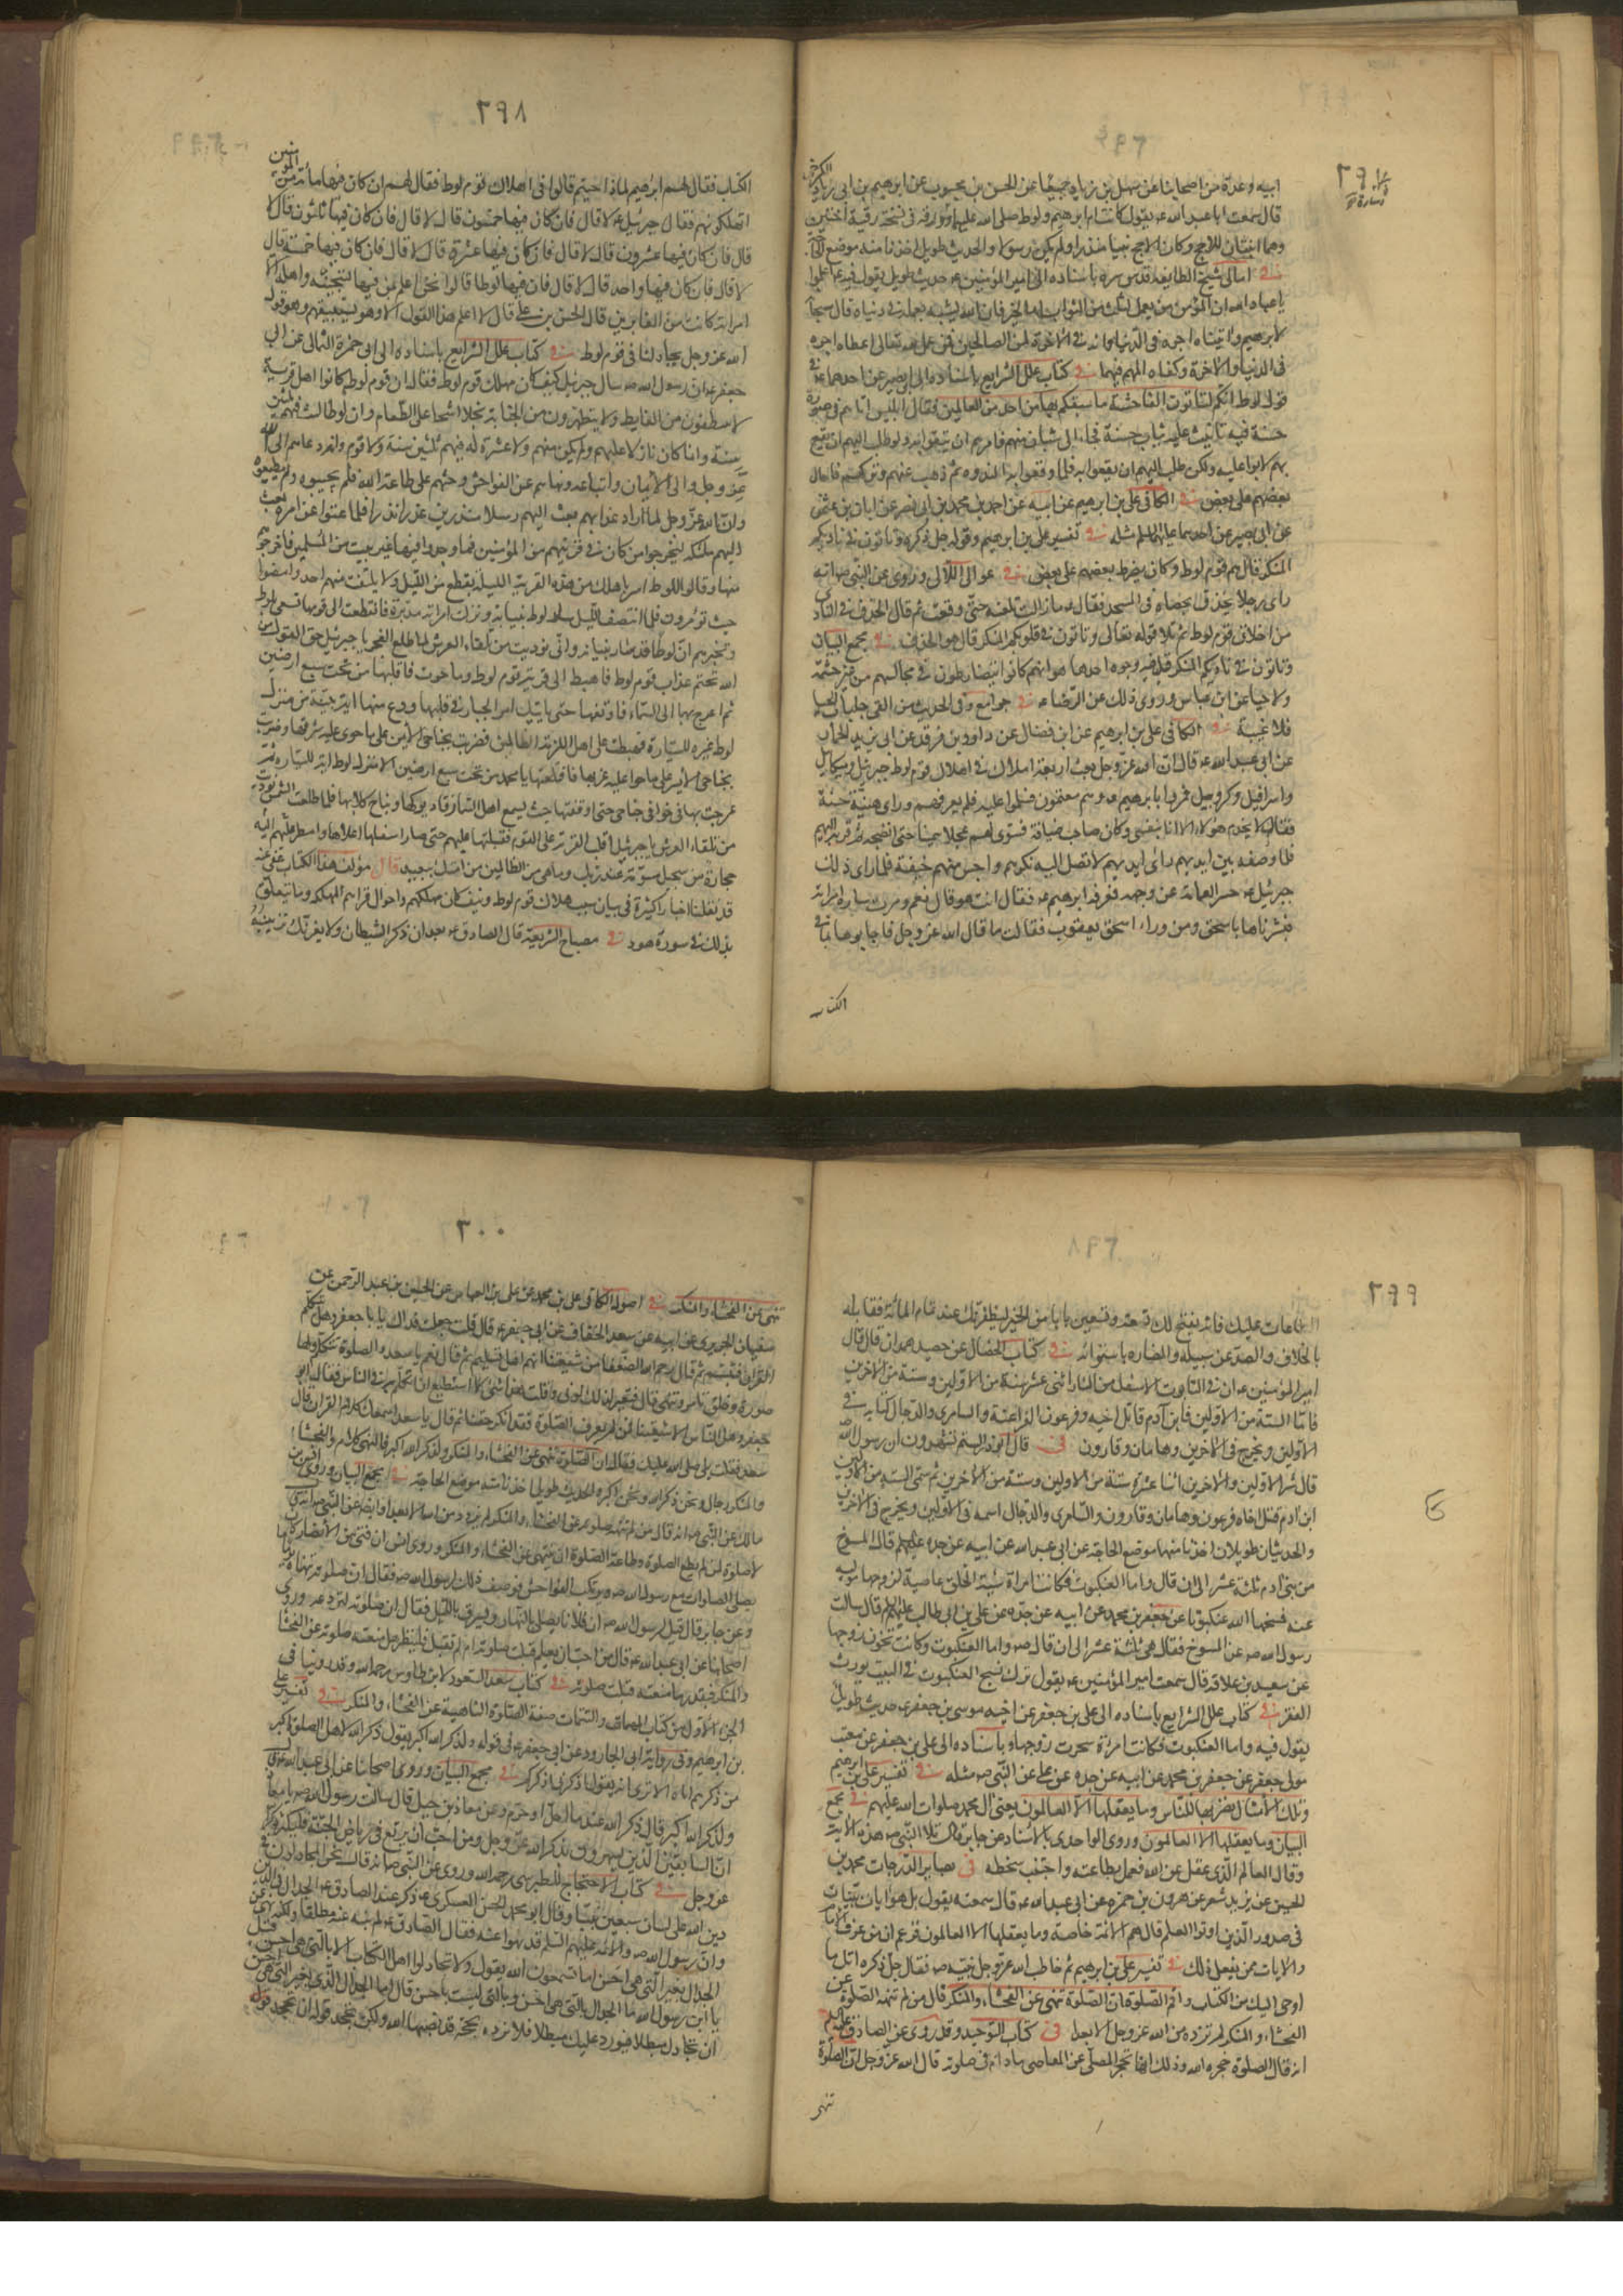 ٢٩٧
ابيه وعدّة من اصحابنا عن سهل بن زياد جميعًا عن الحسن بن محبوب عن ابرهيم بن ابى زياد الكرخى
قال سمعت ابا عبد الله ع يقول كانت ام ابرهيم وام لوط صلى الله عليهما وورقة فى نسخة رقية اختين
وهما ابنتان للاحج وكان لاحج نبيا منذرا ولم يكن رسولا والحديث طويل اخذنا منه موضع الحاجة
فى امالى شيخ الطايفة قدس سره باسناده الى امير المؤمنين ع حديث طويل يقول فيه
يا عباد الله ان المؤمن من يعمل لثلث من الثواب اما الخير فان الله يثيبه بعمله فى دنياه قال سبحانه
لابرهيم واتيناه اجره فى الدنيا وانه فى الآخرة لمن الصالحين فمن عمل لله تعالى اعطاه اجره
فى الدنيا والآخرة وكفاه المهم فيهما فى كتاب علل الشرايع باسناده الى ابى بصير عن احدهما ع فى
قول لوط انكم لتأتون الفاحشة ما سبقكم بها من احد من العالمين فقال ابليس اتاهم فى صورة
حسنة فيه تأنيث عليه ثياب حسنة فجاء الى شبان منهم فامرهم ان يقعوا به ولو طلب اليهم ان يقع
بهم لابوا عليه ولكن طلب اليهم ان يقعوا به فلما وقعوا به التذوه ثم ذهب عنهم وتركهم فاحال
بعضهم على بعض فى الكافى على بن ابرهيم عن ابيه عن احمد بن محمد بن ابى نصر عن ابان بن عثمن
عن ابى بصير عن احدهما عليهما السلم مثله فى تفسير على بن ابرهيم وقوله جل ذكره وتأتون فى ناديكم
المنكر قال هم قوم لوط وكان يضرط بعضهم على بعض فى عوالى اللآلى وروى عن النبى ص انه
رأى رجلا يخذف بحصاة فى المسجد فقال ص ما زالت تلعنه حتى وقعت ثم قال الخذف فى النادى
من اخلاق قوم لوط ثم تلا قوله تعالى وتأتون فى ناديكم المنكر قال هو الخذف فى مجمع البيان
وتأتون فى ناديكم المنكر قيل فيه وجوه احدها هو انهم كانوا يتضارطون فى مجالسهم من غير حشمة
ولا حيا عن ابن عباس وروى ذلك عن الرضا ع فى جوامع وفى الحديث من القى جلباب الحيا
فلا غيبة له فى الكافى على بن ابرهيم عن ابن فضال عن داود بن فرقد عن ابى يزيد الحمار
عن ابى عبد الله ع قال ان الله عز وجل بعث اربعة املاك فى اهلاك قوم لوط جبرئيل وميكائيل
واسرافيل وكروبيل فمروا بابرهيم ع وهم معتمون فسلموا عليه فلم يعرفهم وراى هيئة حسنة
فقال لا يخدم هؤلاء الا انا بنفسى وكان صاحب ضيافة فشوى لهم عجلا سمينا حتى انضجه ثم قربه اليهم
فلما وضعه بين ايديهم رأى ايديهم لا تصل اليه نكرهم واوجس منهم خيفة فلما راى ذلك
جبرئيل ع حسر العمامة عن وجهه فعرفه ابرهيم ع فقال انت هو قال نعم ومرت سارة امراته
فبشرناها باسحق ومن وراء اسحق يعقوب فقالت ما قال الله عز وجل فاجابوها بما فى
الكتاب
٢٩٨
الكتاب فقال لهم ابرهيم لماذا جئتم قالوا فى اهلاك قوم لوط فقال لهم ان كان فيها مائة من المؤمنين
اتهلكونهم فقال جبرئيل ع لا قال فان كان فيها خمسون قال لا قال فان كان فيها ثلثون قال لا
قال فان كان فيها عشرون قال لا قال فان كان فيها عشرة قال لا قال فان كان فيها خمسة قال
لا قال فان كان فيها واحد قال لا قال فان فيها لوطا قالوا نحن اعلم بمن فيها لننجينه واهله الا
امراته كانت من الغابرين قال الحسن بن على قال لا اعلم هذا القول الا وهو يستبقيهم وهو قول
الله عز وجل يجادلنا فى قوم لوط فى كتاب علل الشرايع باسناده الى ابى حمزة الثمالى عن ابى
جعفر ع ان رسول الله ص سال جبرئيل كيف كان مهلك قوم لوط فقال ان قوم لوط كانوا اهل قرية
لا يتنظفون من الغايط ولا يتطهرون من الجنابة بخلا اشحا على الطعام وان لوطا لبث فيهم ثلثين
سنة وانما كان نازلا عليهم ولم يكن منهم ولا عشيرة له فيهم ولا قوم وانه دعاهم الى الله
عز وجل والى الايمان واتباعه ونهاهم عن الفواحش وحثهم على طاعة الله فلم يجيبوه ولم يطيعوه
وان الله عز وجل لما اراد عذابهم بعث اليهم رسلا منذرين عذرا نذرا فلما عتوا عن امره بعث
اليهم ملئكة ليخرجوا من كان فى قريتهم من المؤمنين فما وجدوا فيها غير بيت من المسلمين فاخرجوهم
منها وقالوا للوط اسر باهلك من هذه القرية الليلة بقطع من الليل ولا يلتفت منكم احد وامضوا
حيث تؤمرون فلما انتصف الليل سار لوط ببناته وتولت امراته مدبرة فانقطعت الى قومها تسعى بلوط
وتخبرهم ان لوطا قد سار ببناته وانى نوديت من تلقاء العرش لما طلع الفجر يا جبرئيل حق القول من
الله تحتم عذاب قوم لوط فاهبط الى قرية قوم لوط وما حوت فاقلبها من تحت سبع ارضين
ثم اعرج بها الى السماء فاوقفها حتى ياتيك امر الجبار فى قلبها ودع منها آية بينة من منزل
لوط عبرة للسيارة فهبطت على اهل القرية الظالمين فضربت بجناحى الايمن على ما حوى عليه شرقها وضربت
بجناحى الايسر على ما حوا عليه غربها فاقتلعتها يا محمد من تحت سبع ارضين الا منزل لوط آية للسيارة ثم
عرجت بها فى خوافى جناحى حتى اوقفتها حيث يسمع اهل السماء زقاء ديوكها ونباح كلابها فلما طلعت الشمس نوديت
من تلقاء العرش يا جبرئيل اقلب القرية على القوم فقلبتها عليهم حتى صار اسفلها اعلاها وامطر عليهم
حجارة من سجيل مسومة عند ربك وما هى من الظالمين من امتك ببعيد قال مؤلف هذا الكتاب عفى عنه
قد نقلنا اخبارا كثيرة فى بيان سبب هلاك قوم لوط وكيف كان مهلكهم واحوال قراهم المهلكة وما يتعلق
بذلك فى سورة هود فى مصباح الشريعة قال الصادق ع بعد ان ذكر الشيطان ولا يغرنك تزيينه
٢٩٩
الطاعات عليك فانه يفتح لك تسعة وتسعين بابا من الخير ليظفر بك عند تمام المائة فقابله
بالخلاف والصد عن سبيله والمضادة باستهوائه فى كتاب الخصال عن
امير المؤمنين ع ان فى التابوت الاسفل من النار اثنى عشر ستة من الاولين وستة من الآخرين
فاما الستة من الاولين فابن آدم قاتل اخيه وفرعون الفراعنة والسامرى والدجال كتابه فى
الاولين ويخرج فى الآخرين وهامان وقارون قال ابو ذر الستم تشهدون ان رسول الله ص
قال شر الاولين والآخرين اثنا عشر ستة من الاولين وستة من الآخرين ثم سمى الستة من الاولين
ابن ادم قتل اخاه وفرعون وهامان وقارون والسامرى والدجال اسمه فى الاولين ويخرج فى الآخرين
والحديثان طويلان اخذنا منهما موضع الحاجة عن ابى عبد الله عن ابيه عن جده عليهم السلم قال المسوخ
من بنى ادم ثلثة عشر الى ان قال واما العنكبوت فكانت امراة سيئة الخلق عاصية لزوجها مولية
عنه فمسخها الله عنكبوتا عن جعفر بن محمد عن ابيه عن جده عن على بن ابى طالب عليهم السلم قال سالت
رسول الله ص عن المسوخ فقال هى ثلثة عشر الى ان قال ص واما العنكبوت وكانت تخون زوجها
عن سعيد بن علاقة قال سمعت امير المؤمنين ع يقول ترك نسج العنكبوت فى البيت يورث
الفقر فى كتاب علل الشرايع باسناده الى على بن جعفر عن اخيه موسى بن جعفر ع حديث طويل
يقول فيه واما العنكبوت فكانت امراة سحرت زوجها وباسناده الى على بن جعفر عن معتب
مولى جعفر عن جعفر بن محمد عن ابيه عن جده عن على عن النبى ص مثله فى تفسير على بن ابرهيم
وتلك الامثال نضربها للناس وما يعقلها الا العالمون يعنى آل محمد صلوات الله عليهم فى مجمع
البيان وما يعقلها الا العالمون وروى الواحدى بالاسناد عن جابر قال تلا النبى ص هذه الآية
وقال العالم الذى عقل عن الله فعمل بطاعته واجتنب سخطه فى بصاير الدرجات محمد بن
الحسين عن يزيد شعر عن هرون بن حمزة عن ابى عبد الله ع قال سمعته يقول بل هو ايات بينات
فى صدور الذين اوتوا العلم قال هم الائمة خاصة وما يعقلها الا العالمون فزعم ان من عرف الامام
والايات ممن يعقل ذلك فى تفسير على بن ابرهيم ثم خاطب الله عز وجل نبيه ص فقال جل ذكره اتل ما
اوحى اليك من الكتاب واقم الصلوة ان الصلوة تنهى عن الفحشاء والمنكر قال من لم تنهه الصلوة عن
الفحشاء والمنكر لم تزده من الله عز وجل الا بعدا فى كتاب التوحيد وقد روى عن الصادق عليه السلم
انه قال الصلوة حجزة الله وذلك انها تحجز المصلى عن المعاصى ما دام فى صلوته قال الله عز وجل ان الصلوة
تنهى
٣٠٠
تنهى عن الفحشاء والمنكر فى اصول الكافى على بن محمد عن على بن العباس عن الحسين بن عبد الرحمن عن
سفيان الحريرى عن ابيه عن سعد الخفاف عن ابى جعفر ع قال قلت جعلت فداك يا با جعفر وهل يتكلم
القرآن فتبسم ثم قال رحم الله الضعفا من شيعتنا انهم اهل تسليم ثم قال نعم يا سعد والصلوة تتكلم ولها
صورة وخلق تأمر وتنهى قال فتغير لذلك لونى وقلت هذا شىء لا استطيع ان اتكلم به فى الناس فقال ابو
جعفر وهل الناس الا شيعتنا فمن لم يعرف الصلوة فقد انكر حقنا ثم قال يا سعد اسمعك كلام القران قال
سعد فقلت بلى صلى الله عليك فقال ان الصلوة تنهى عن الفحشاء والمنكر ولذكر الله اكبر فالنهى كلام والفحشاء
والمنكر رجال ونحن ذكر الله ونحن اكبر والحديث طويل اخذنا منه موضع الحاجة فى مجمع البيان وروى انس بن
مالك عن النبى ص انه قال من لم تنهه صلوته عن الفحشاء والمنكر لم يزدد من الله الا بعدا وايضا عن النبى ص انه قال
لا صلوة لمن لم يطع الصلوة وطاعة الصلوة ان تنتهى عن الفحشاء والمنكر وروى انس ان فتى من الانصار كان
يصلى الصلوات مع رسول الله ص ويرتكب الفواحش فوصف ذلك لرسول الله ص فقال ان صلوته تنهاه
وعن جابر قال قيل لرسول الله ص ان فلانا يصلى بالنهار ويسرق بالليل فقال ان صلوته لتردعه وروى
اصحابنا عن ابى عبد الله ع قال من احب ان يعلم قبلت صلوته ام لم تقبل فلينظر هل منعته صلوته عن الفحشا
والمنكر فبقدر ما منعته قبلت صلوته فى كتاب سعد السعود لابن طاوس رحمه الله وقد روينا فى
الجزء الاول من كتاب المهمات والتتمات صفة الصلوة الناهية عن الفحشاء والمنكر فى تفسير على
بن ابرهيم وفى رواية ابى الجارود عن ابى جعفر ع فى قوله ولذكر الله اكبر يقول ذكر الله لاهل الصلوة اكبر
من ذكرهم اياه الا ترى انه يقول اذكرونى اذكركم فى مجمع البيان وروى اصحابنا عن ابى عبد الله ع
ولذكر الله اكبر قال ذكر الله عند ما احل او حرم وعن معاذ بن جبل قال سالت رسول الله ص يا معاذ
ان السابقين الذين يسهرون بذكر الله عز وجل ومن احب ان يرتع فى رياض الجنة فليكثر ذكر الله
عز وجل فى كتاب الاحتجاج للطبرسى رحمه الله وروى عن النبى ص انه قال نحن المجادلون فى
دين الله على لسان سبعين نبيا وقال ابو محمد الحسن العسكرى ع ذكر عند الصادق ع الجدال فى الدين
وان رسول الله ص والائمة عليهم السلم قد نهوا عنه فقال الصادق ع لم ينه عنه مطلقا ولكنه نهى عن
الجدال بغير التى هى احسن اما تسمعون الله يقول ولا تجادلوا اهل الكتاب الا بالتى هى احسن قيل
يا ابن رسول الله ما الجدال بالتى هى احسن وبالتى ليست باحسن قال اما الجدال الذى بغير التى هى احسن
ان تجادل مبطلا فيورد عليك مبطلا فلا ترده بحجة قد نصبها الله ولكن تجحد قوله او تجحد قول